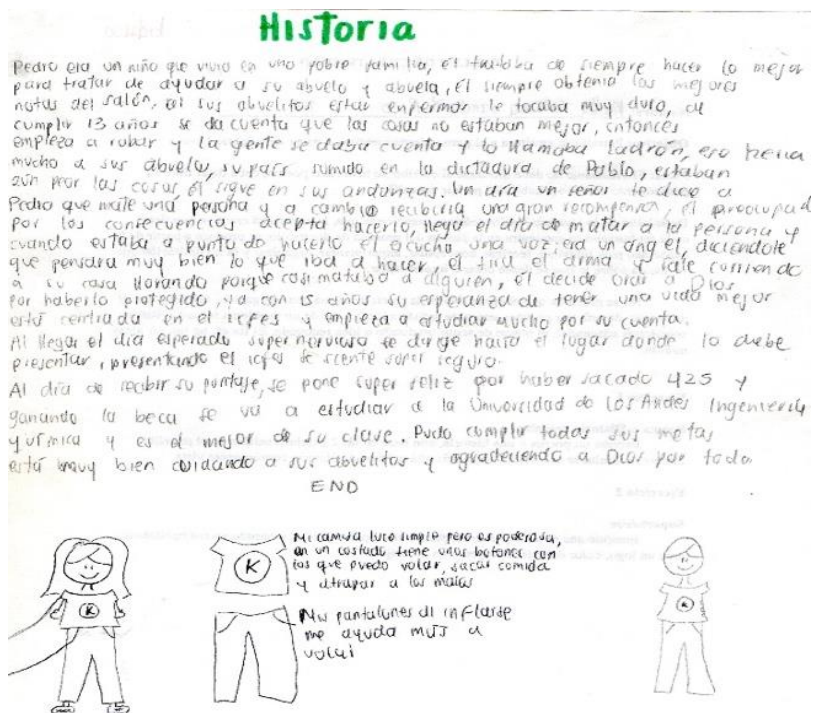 Historia
Pedro era un niño que vivio en una pobre familia, él trataba de siempre hacer lo mejor
para tratar de ayudar a su abuelo y abuela, él siempre obtenia las mejores
notas del salón, sus abuelitos estar enfermos le tocaba muy duro, al
cumplir 13 años se da cuenta que las cosas no estaban mejor, entonces
empieza a robar y la gente se daba cuenta y lo llamaba ladrón, eso heria
mucho a sus abuelos, su país sumido en la dictadura de Pablo, estaban
aún peor las cosas él sigue en sus andanzas. Un día un señor le dice a
Pedro que mate una persona y a cambio recibiria una gran recompensa, él preocupad
por las consecuencias acepta hacerlo, llego el día de matar a la persona y
cuando estaba a punto de hacerlo él escucho una voz, era un angel, diciendole
que pensara muy bien lo que iba a hacer, él tira el arma y sale corriendo
a su casa llorando porque casi mataba a alguien, él decide orar a Dios
por haberlo protegido, ya con 15 años su esperanza de tener una vida mejor
está centrada en el icfes y empieza a estudiar mucho por su cuenta.
Al llegar el día esperado super nervioso se dirge hacia el lugar donde lo debe
presentar, presentando el icfes se siente super seguro.
Al día de recibir su puntaje, se pone super feliz por haber sacado 425 y
ganando la beca se va a estudiar a la Universidad de Los Andes Ingenieria
química y es el mejor de su clase. Pudo cumplir todas sus metas
está muy bien cuidando a sus abuelitos y agradeciendo a Dios por todo.
END
Mi camisa luce simple pero es poderosa,
en un costado tiene unos botones con
los que puedo volar, sacar comida
y atrapar a los malos
K
K
K
Mis pantalones al inflarse
me ayuda más a
volar